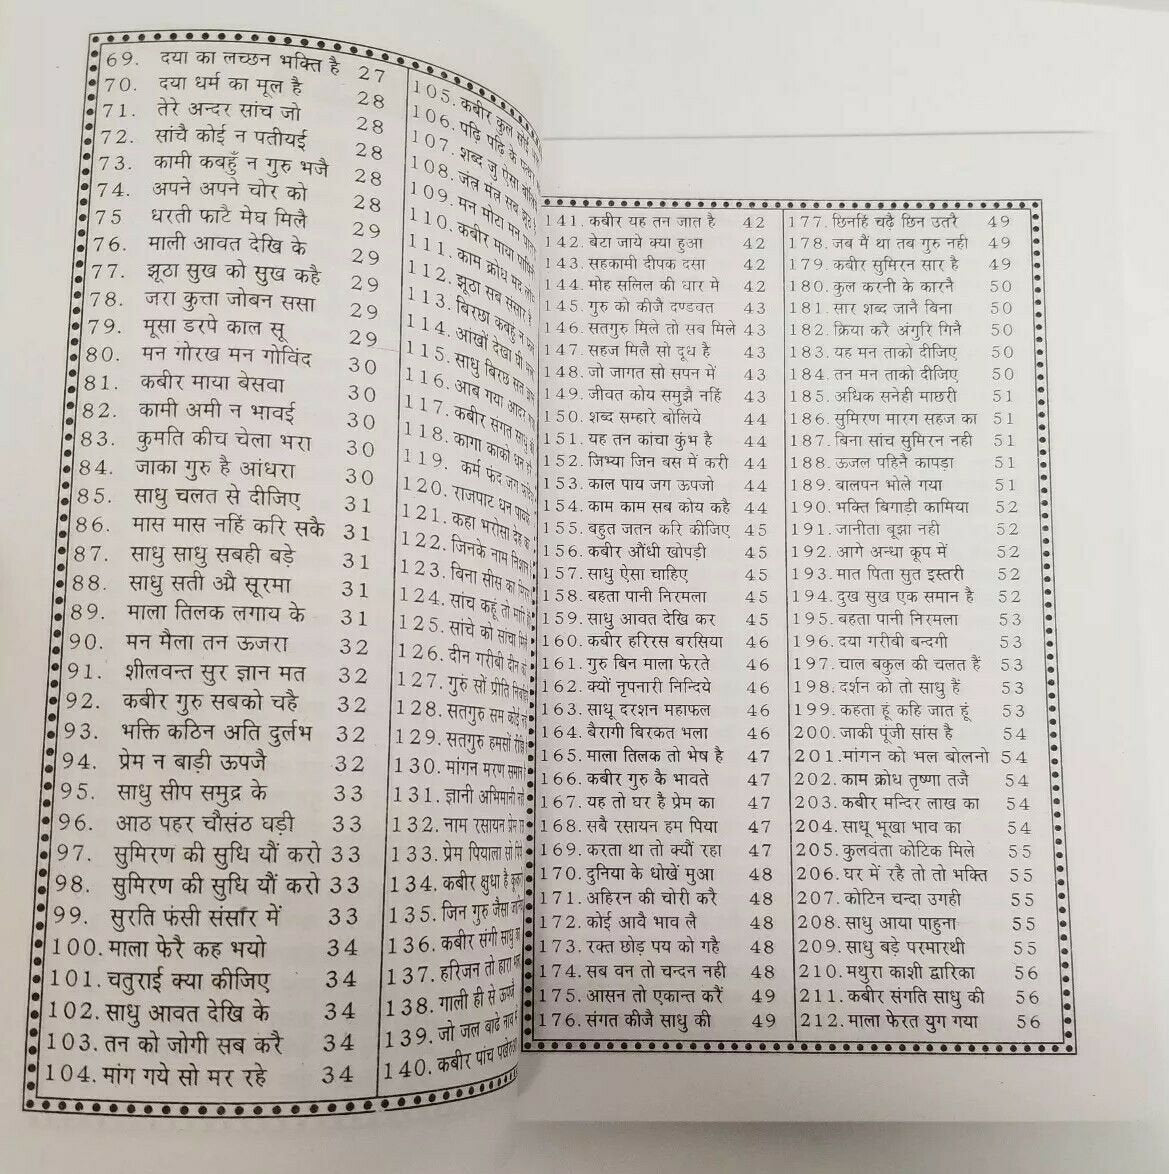 69. दया का लच्छन भक्ति है 27
70. दया धर्म का मूल है 28
71. तेरे अन्दर सांच जो 28
72. सांचै कोई न पतीयई 28
73. कामी कबहुँ न गुरु भजै 28
74. अपने अपने चोर को 28
75 धरती फाटै मेघ मिलै 29
76. माली आवत देखि के 29
77. झूठा सुख को सुख कहै 29
78. जरा कुत्ता जोबन ससा 29
79. मूसा डरपे काल सू 29
80. मन गोरख मन गोविंद 30
81. कबीर माया बेसवा 30
82. कामी अमी न भावई 30
83. कुमति कीच चेला भरा 30
84. जाका गुरु है आंधरा 30
85. साधु चलत से दीजिए 31
86. मास मास नहिं करि सकै 31
87. साधु साधु सबही बड़े 31
88. साधु सती औ सूरमा 31
89. माला तिलक लगाय के 31
90. मन मैला तन ऊजरा 32
91. शीलवन्त सुर ज्ञान मत 32
92. कबीर गुरु सबको चहै 32
93. भक्ति कठिन अति दुर्लभ 32
94. प्रेम न बाड़ी ऊपजै 32
95. साधु सीप समुद्र के 33
96. आठ पहर चौसंठ घड़ी 33
97. सुमिरण की सुधि यौं करो 33
98. सुमिरण की सुधि यौं करो 33
99. सुरति फंसी संसार में 33
100. माला फेरै कह भयो 34
101. चतुराई क्या कीजिए 34
102. साधु आवत देखि के 34
103. तन को जोगी सब करै 34
104. मांग गये सो मर रहे 34
105. कबीर कुल
106. पढ़ि पढ़ि के
107. शब्द जु ऐसा
108. जंत्र मंत्र सब झूठ
109. मन मोटा मन
110. कबीर माया
111. काम क्रोध मद
112. झूठा सब संसार
113. बिरछा कबहुं न
114. आंखों देखा घी
115. साधु बिरछ सत
116. आब गया आदर
117. कबीर संगत साधु
118. कागा काको धन
119. कर्म फंद जग
120. राजपाट धन
121. कहा भरोसा देह
122. जिनके नाम
123. बिना सीस का
124. सांच कहूं तो
125. सांचे को सांचा
126. दीन गरीबी दीन
127. गुरु सों प्रीति
128. सतगुरु सम कोई
129. सतगुरु हमसों
130. मांगन मरण समान
131. ज्ञानी अभिमानी
132. नाम रसायन प्रेम
133. प्रेम पियाला सो
134. कबीर क्षुधा है
135. जिन गुरु जैसा
136. कबीर संगी साधु
137. हरिजन तो हारा
138. गाली ही से ऊपजै
139. जो जल बाढ़े नाव
140. कबीर पांच
141. कबीर यह तन जात है 42
142. बेटा जाये क्या हुआ 42
143. सहकामी दीपक दसा 42
144. मोह सलिल की धार मे 42
145. गुरु को कीजै दण्डवत 43
146. सतगुरु मिले तो सब मिले 43
147. सहज मिलै सो दूध है 43
148. जो जागत सो सपन में 43
149. जीवत कोय समुझै नहिं 43
150. शब्द सम्हारे बोलिये 44
151. यह तन कांचा कुंभ है 44
152. जिभ्या जिन बस में करी 44
153. काल पाय जग ऊपजो 44
154. काम काम सब कोय कहै 44
155. बहुत जतन करि कीजिए 45
156. कबीर औंधी खोपड़ी 45
157. साधु ऐसा चाहिए 45
158. बहता पानी निरमला 45
159. साधु आवत देखि कर 45
160. कबीर हरिरस बरसिया 46
161. गुरु बिन माला फेरते 46
162. क्यों नृपनारी निन्दिये 46
163. साधू दरशन महाफल 46
164. बैरागी बिरकत भला 46
165. माला तिलक तो भेष है 47
166. कबीर गुरु कै भावते 47
167. यह तो घर है प्रेम का 47
168. सबै रसायन हम पिया 47
169. करता था तो क्यौं रहा 47
170. दुनिया के धोखें मुआ 48
171. अहिरन की चोरी करै 48
172. कोई आवै भाव लै 48
173. रक्त छोड़ पय को गहै 48
174. सब वन तो चन्दन नही 48
175. आसन तो एकान्त करैं 49
176. संगत कीजै साधु की 49
177. छिनहिं चढ़ै छिन उतरै 49
178. जब मैं था तब गुरु नही 49
179. कबीर सुमिरन सार है 49
180. कुल करनी के कारनै 50
181. सार शब्द जानै बिना 50
182. क्रिया करै अंगुरि गिनै 50
183. यह मन ताको दीजिए 50
184. तन मन ताको दीजिए 50
185. अधिक सनेही माछरी 51
186. सुमिरण मारग सहज का 51
187. बिना सांच सुमिरन नही 51
188. ऊजल पहिनै कापड़ा 51
189. बालपन भोले गया 51
190. भक्ति बिगाड़ी कामिया 52
191. जानीता बूझा नही 52
192. आगे अन्धा कूप में 52
193. मात पिता सुत इस्तरी 52
194. दुख सुख एक समान है 52
195. बहता पानी निरमला 53
196. दया गरीबी बन्दगी 53
197. चाल बकुल की चलत हैं 53
198. दर्शन को तो साधु हैं 53
199. कहता हूं कहि जात हूं 53
200. जाकी पूंजी सांस है 54
201. मांगन को भल बोलनो 54
202. काम क्रोध तृष्णा तजै 54
203. कबीर मन्दिर लाख का 54
204. साधू भूखा भाव का 54
205. कुलवंता कोटिक मिले 55
206. घर में रहै तो तो भक्ति 55
207. कोटिन चन्दा उगही 55
208. साधु आया पाहुना 55
209. साधु बड़े परमारथी 55
210. मथुरा काशी द्वारिका 56
211. कबीर संगति साधु की 56
212. माला फेरत युग गया 56